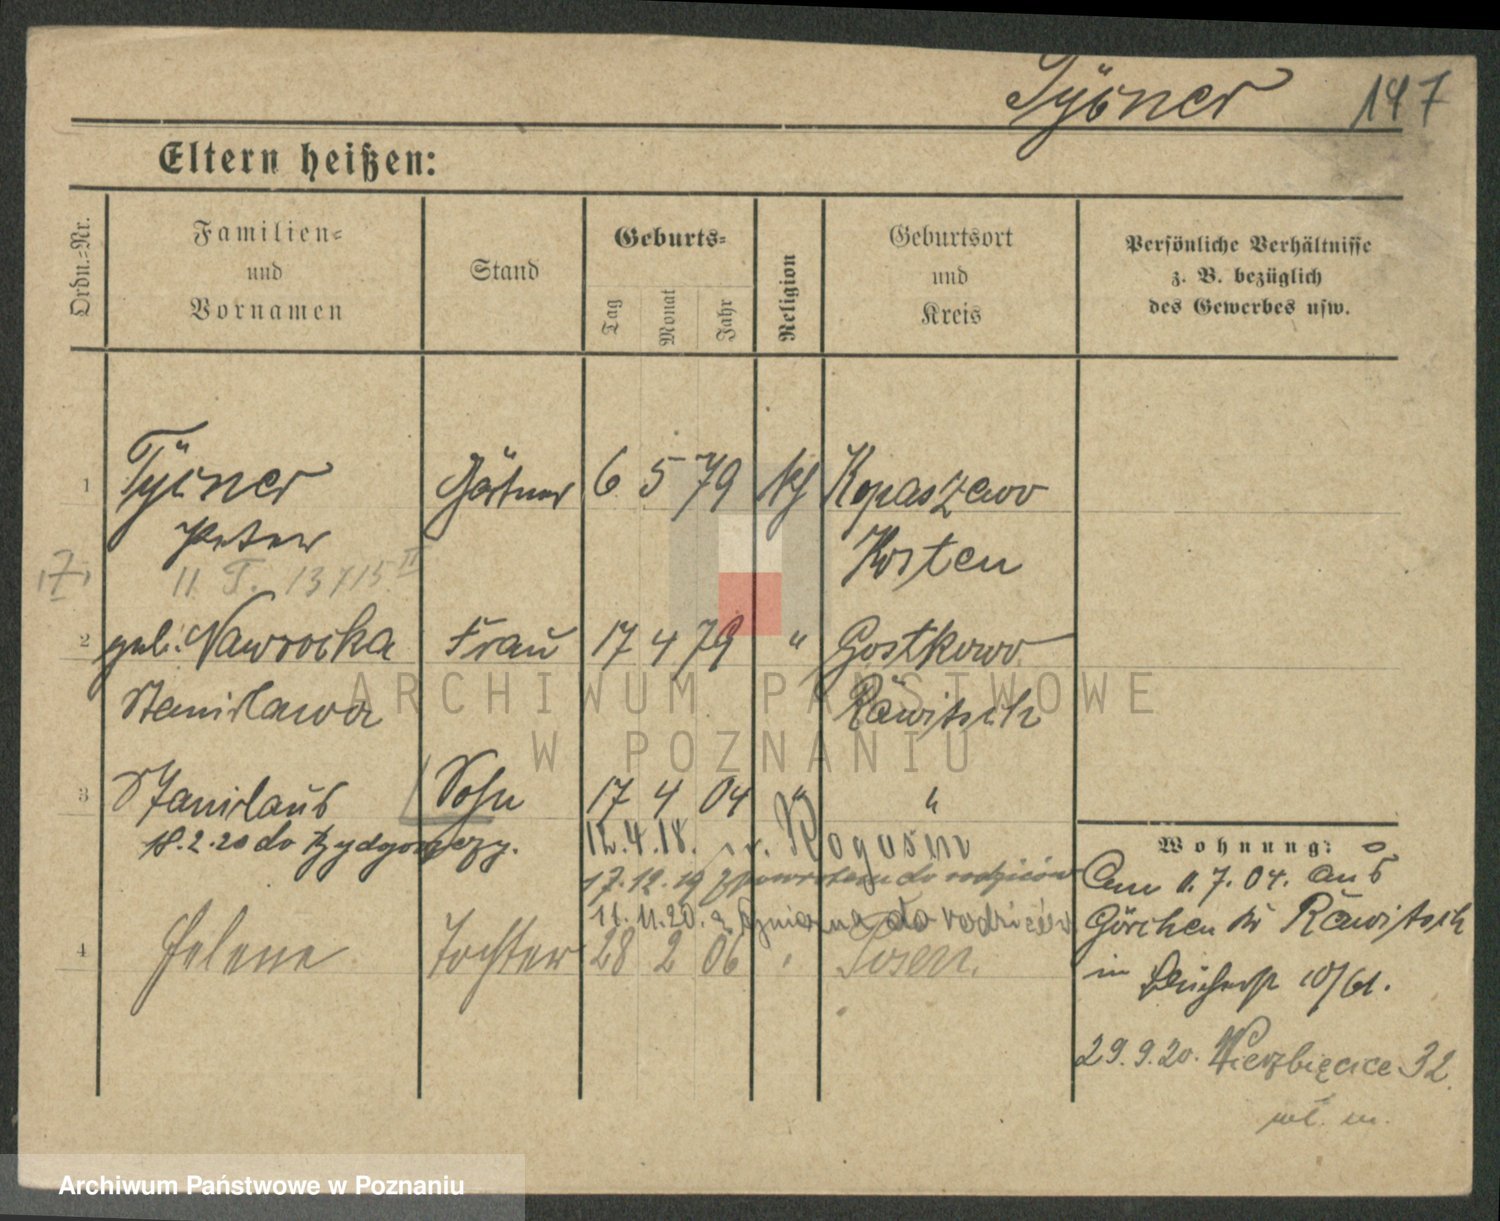 Tyëner 147
Eltern heißen:
Ordn.=Nr.
Familien=
und
Vornamen
Stand
Geburts=
Tag
Monat
Jahr
Religion
Geburtsort
und
Kreis
Persönliche Verhältnisse
z. B. bezüglich
des Gewerbes usw.
1 Gärtner 6 5 79 Kopaszewo
Peter Kosten
17
2 geb. Nawrocka Frau 17 4 79 " Gostkowo
Stanislawa Rawitsch
3 Stanislaus Sohn 17 4 04 " "
18.2.20 do Bydgoszczy.
12.4.18. Rogasen
17.12.19 z powrotem do rodziców
11.11.20. z Gniezna do rodziców
4 Helene Tochter 28 2 06 " Posen.
Wohnung:
Am 11.7.04. aus
Görchen Kr Rawitsch
in 10/61.
29.9.20. Wierzbięcice 32.
ARCHIWUM PAŃSTWOWE
W POZNANIU
Archiwum Państwowe w Poznaniu